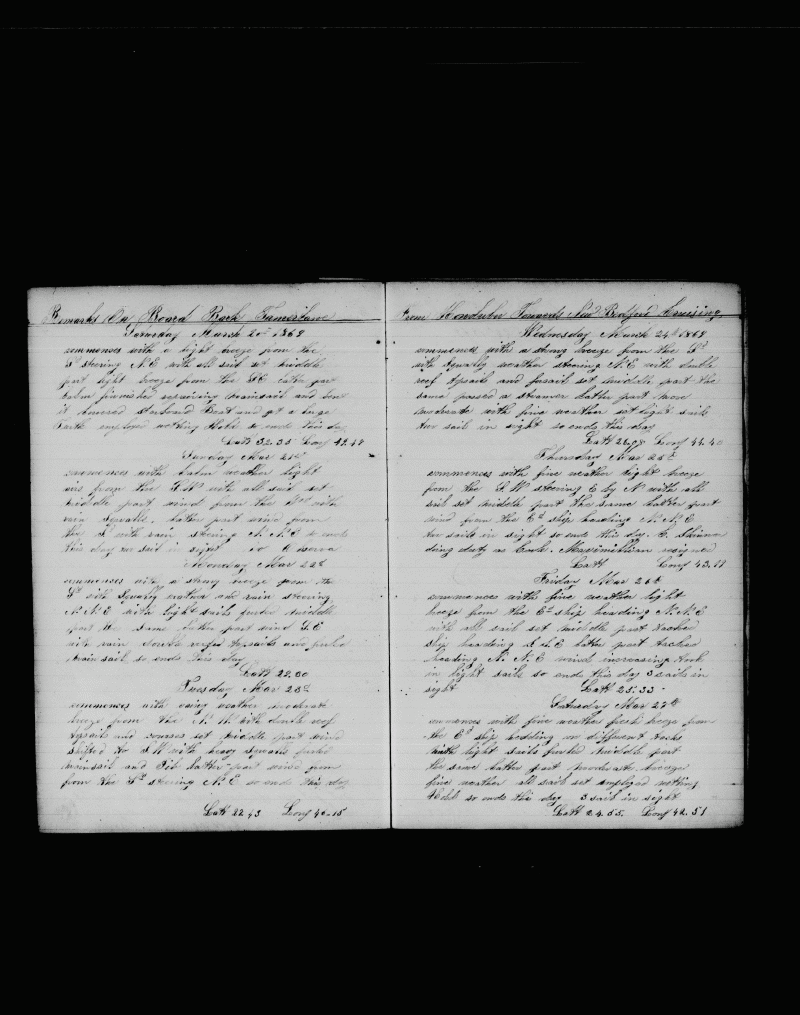 Remarks On Board Bark Tamerlane
Saturday March 20th 1869
commences with a light breeze from the
Sd steering N.E with all sail set middle
part light breeze from the SE latter part
calm finished repairing mainsail and bent
it lowered Starboard Boat and got a large
employed nothing so ends this day
Latt 32.35 Long 42.44
Sunday Mar 21st
commences with calm weather light
airs from the S.W with all sail set
middle part wind from the Nd with
rain squalls. latter part wind from
the S with rain steering N.N.E so ends
this day no sail in sight no Observa
Monday Mar 22d
commences with a strong breeze from the
Sd with squally weather and rain steering
N.N.E with light sails furled middle
part the same latter part wind S.E
with rain double reefed topsails and furled
mainsail so ends this day
Latt 28.00
Tuesday Mar 23d
commences with rainy weather moderate
breeze from the N.W with double reef
topsails and courses set middle part wind
shifted to SW with heavy squalls furled
mainsail and Jib latter part wind from
from the Sd steering N.E so ends this day
Latt 22.43 Long 42.15
From Honolulu Towards New Bedford Cruising
Wednesday March 24th 1869
commences with a strong breeze from the Sd
with squally weather steering N.E with double
reef topsails and foresail set middle part the
same passed a steamer latter part more
moderate with fine weather set light sails
two sail in sight so ends this day
Latt 26.98 Long 44.40
Thursday Mar 25th
commences with fine weather light breeze
from the S.W steering E by N with all
sail set middle part the same latter part
wind from the Ed ship heading N.N.E
two sails in sight so ends this day. Skinner
doing duty as Cook. Maximillian resigned
Latt Long 43.18
Friday Mar 26th
commences with fine weather light
breeze from the Ed ship heading N.N.E
with all sail set middle part tacked
ship heading S.S.E latter part tacked
heading N.N.E wind increasing took
in light sails so ends this day 3 sails in
sight Latt 25.33
Saturday Mar 27th
commences with fine weather fresh breeze from
the Ed ship heading on different tacks
with light sails furled middle part
the same latter part moderate breeze
fine weather all sail set employed nothing
so ends this day 3 sail in sight
Latt 24.55. Long 42.51